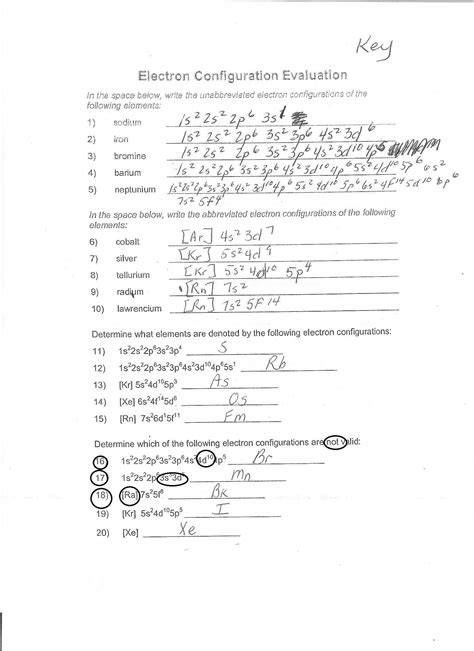 Key
Electron Configuration Evaluation
In the space below, write the unabbreviated electron configurations of the
following elements:
1) sodium 1s² 2s² 2p⁶ 3s¹
2) iron 1s² 2s² 2p⁶ 3s² 3p⁶ 4s² 3d⁶
3) bromine 1s² 2s² 2p⁶ 3s² 3p⁶ 4s² 3d¹⁰ 4p⁵
4) barium 1s² 2s² 2p⁶ 3s² 3p⁶ 4s² 3d¹⁰ 4p⁶ 5s² 4d¹⁰ 5p⁶ 6s²
5) neptunium 1s² 2s² 2p⁶ 3s² 3p⁶ 4s² 3d¹⁰ 4p⁶ 5s² 4d¹⁰ 5p⁶ 6s² 4f¹⁴ 5d¹⁰ 6p⁶
7s² 5f⁴
In the space below, write the abbreviated electron configurations of the following
elements:
6) cobalt [Ar] 4s² 3d⁷
7) silver [Kr] 5s² 4d⁹
8) tellurium [Kr] 5s² 4d¹⁰ 5p⁴
9) radium [Rn] 7s²
10) lawrencium [Rn] 7s² 5f¹⁴
Determine what elements are denoted by the following electron configurations:
11) 1s²2s²2p⁶3s²3p⁴ S
12) 1s²2s²2p⁶3s²3p⁶4s²3d¹⁰4p⁶5s¹ Rb
13) [Kr] 5s²4d¹⁰5p³ As
14) [Xe] 6s²4f¹⁴5d⁶ Os
15) [Rn] 7s²6d¹5f¹¹ Fm
Determine which of the following electron configurations are not valid:
16) 1s²2s²2p⁶3s²3p⁶4s²4d¹⁰4p⁵ Br
17) 1s²2s²2p⁶3s³3d⁵ Mn
18) [Ra] 7s²5f⁸ Bk
19) [Kr] 5s²4d¹⁰5p⁵ I
20) [Xe] Xe